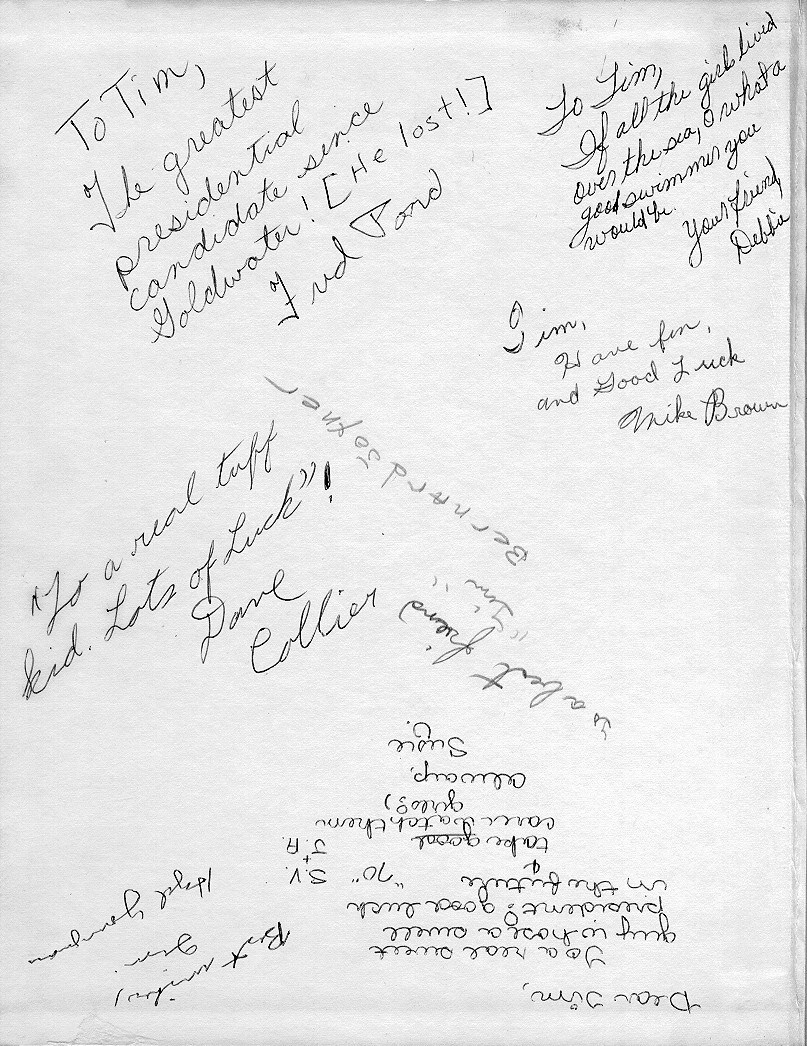 To Tim,
The greatest
presidential
candidate since
Goldwater! [He lost!]
Fred Pond
To Tim,
If all the girls lived
over the sea, O what a
good swimmer you
would be.
Your friend,
Debbie
Tim,
Have fun,
and Good Luck
Mike Brown
"To a real tuff
kid. Lots of Luck"!
Dave
Collier
to a best friend
"Tim"
Bernard
Dear Tim,
To a real sweet
guy who's a swell
president. good luck
in the future
take good
care
watch them
girls?)
always,
Susie
G.
"70"
S.V.
+
J.A.
Best wishes,
Tim